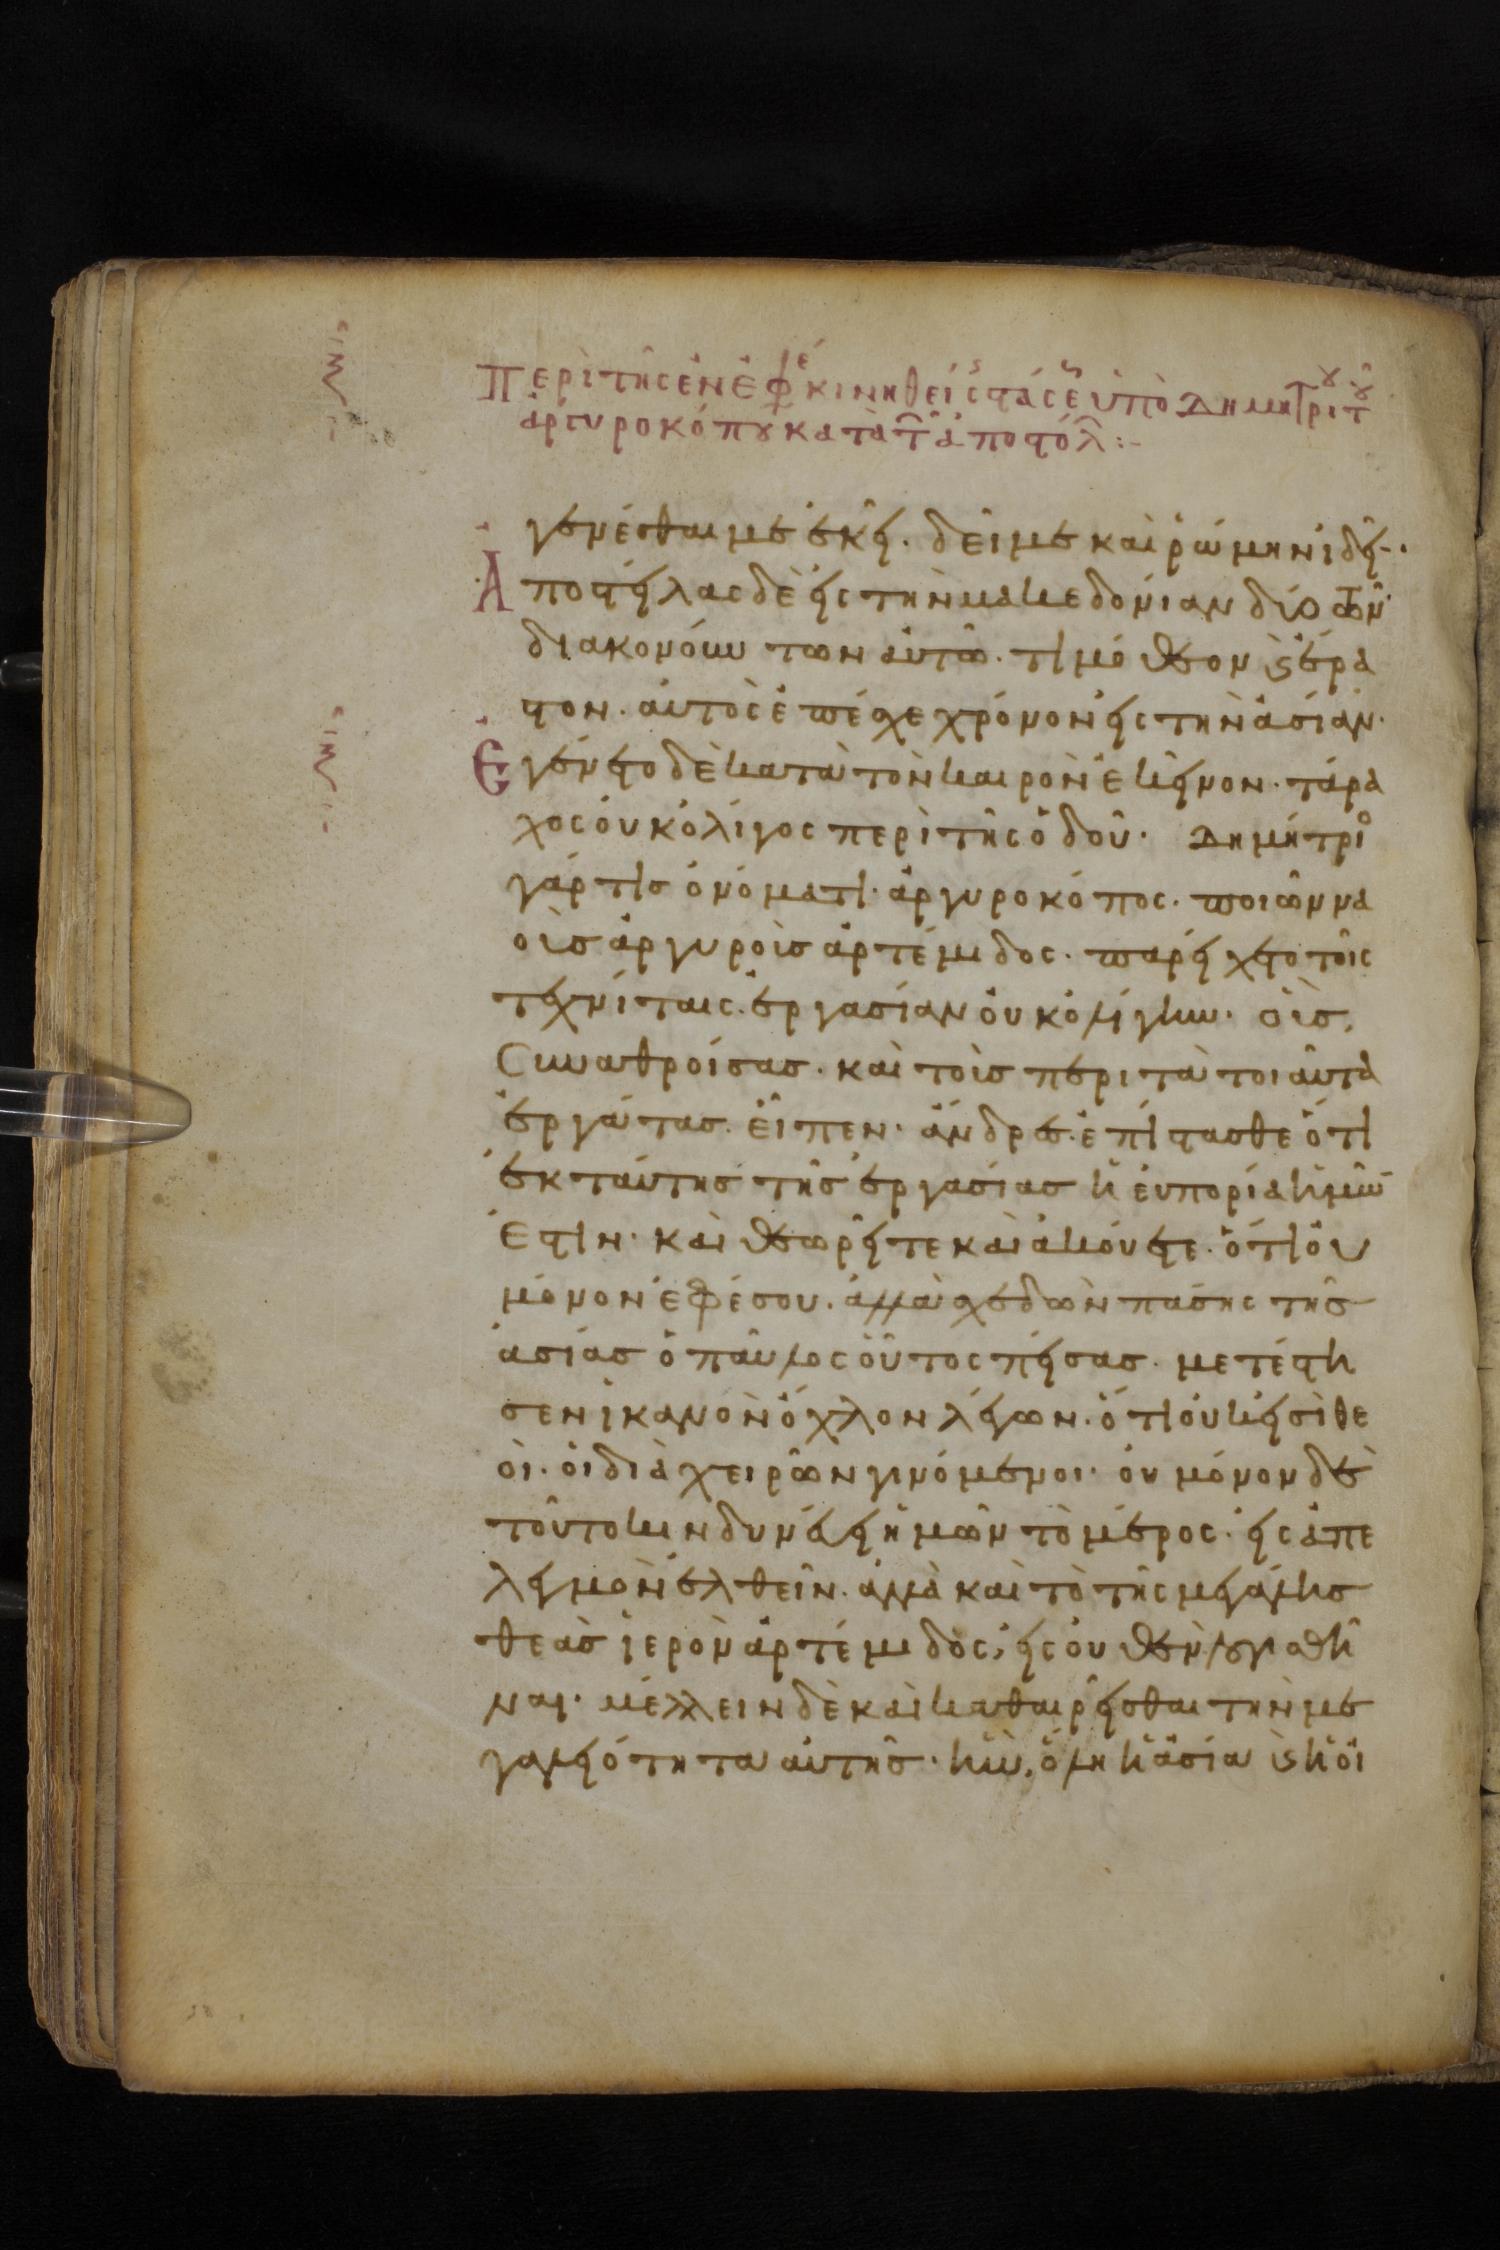 Περὶ τῆς ἐν Ἐφέ κινηθείς στάσε ὑπὸ Δημητρίου τοῦ
ἀργυροκόπου κατὰ τ ἀποστόλ :-
γενέσθαι με ἐκεῖ. δεῖ με καὶ ῥώμην ἰδεῖν·
Ἀποστείλας δὲ εἰς τὴν μακεδονίαν δύο τῶν
διακονούντων αὐτῶ. τιμόθεον κ ἔρα
στον. αὐτὸς ἐπέσχε χρόνον εἰς τὴν ἀσίαν.
Ἐγένετο δὲ κατὰ τὸν καιρὸν ἐκεῖνον. τάρα
χος οὐκ ὀλίγος περὶ τῆς ὁδοῦ. Δημήτριος
γάρ τις ὀνόματι. ἀργυροκόπος. ποιῶν να
οὺς ἀργυροὺς ἀρτέμιδος. παρείχετο τοῖς
τεχνίταις. ἐργασίαν οὐκ ὀλίγην. οὓς,
Συναθροίσας. καὶ τοὺς περὶ τὰ τοιαῦτα
ἐργάτας. εἶπεν. ἄνδρες. ἐπίστασθε ὅτι
ἐκ ταύτης τῆς ἐργασίας ἡ εὐπορία ἡμῶν
ἐστιν. καὶ θεωρεῖτε καὶ ἀκούετε. ὅτι οὐ
μόνον ἐφέσου. ἀλλὰ σχεδὼν πάσης τῆς
ἀσίας ὁ παῦλος οὗτος πείσας. μετέστη
σεν ἱκανὸν ὄχλον λέγων. ὅτι οὐκ εἰσὶ θε
οὶ. οἱ διὰ χειρῶν γινόμενοι. οὐ μόνον δὲ
τοῦτο κινδυνεύει ἡμῶν τὸ μέρος. εἰς ἀπε
λεγμὸν ἐλθεῖν. ἀλλὰ καὶ τὸ τῆς μεγάλης
θεᾶς ἱερὸν ἀρτέμιδος, εἰς οὐθὲν λογισθῆ
ναι. μέλλειν δὲ καὶ καθαιρεῖσθαι τὴν με
γαλειότητα αὐτῆς. ἣν, ὅλη ἡ ἀσία κ ἡ οἰ